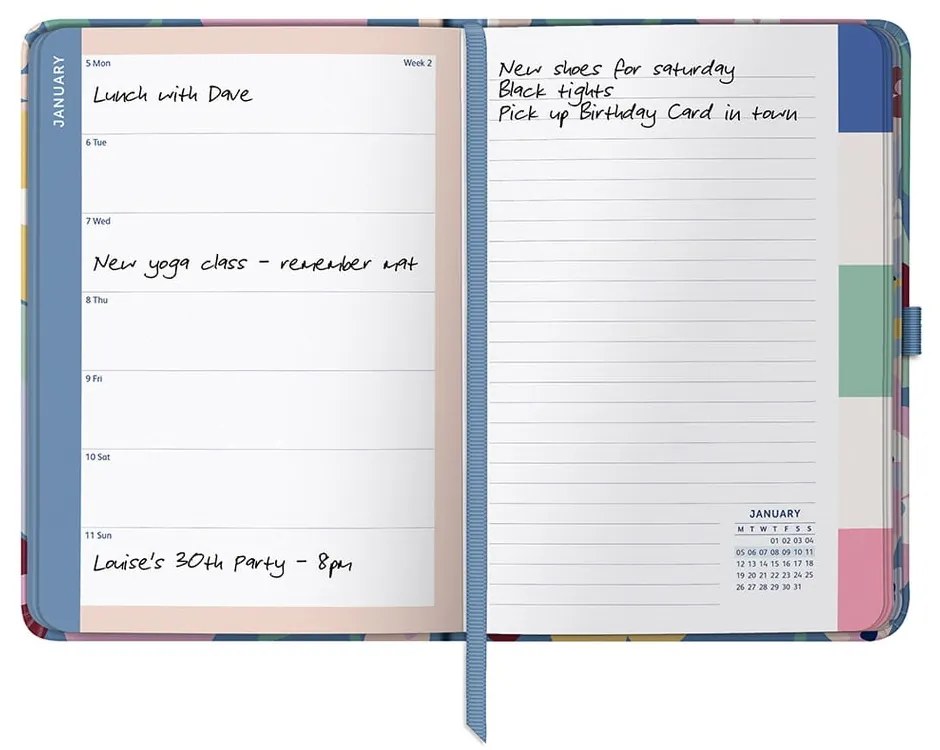 JANUARY
5 Mon Week 2
Lunch with Dave
6 Tue
7 Wed
New yoga class - remember mat
8 Thu
9 Fri
10 Sat
11 Sun
Louise's 30th Party - 8pm
New shoes for saturday
Black tights
Pick up Birthday Card in town
JANUARY
M T W T F S S
01 02 03 04
05 06 07 08 09 10 11
12 13 14 15 16 17 18
19 20 21 22 23 24 25
26 27 28 29 30 31